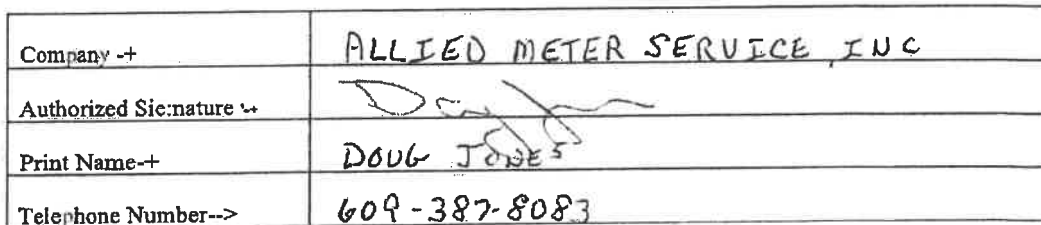 Company -+ ALLIED METER SERVICE, INC
Authorized Sie:nature
Print Name-+ DOUG JONES
Telephone Number--> 609-387-8083